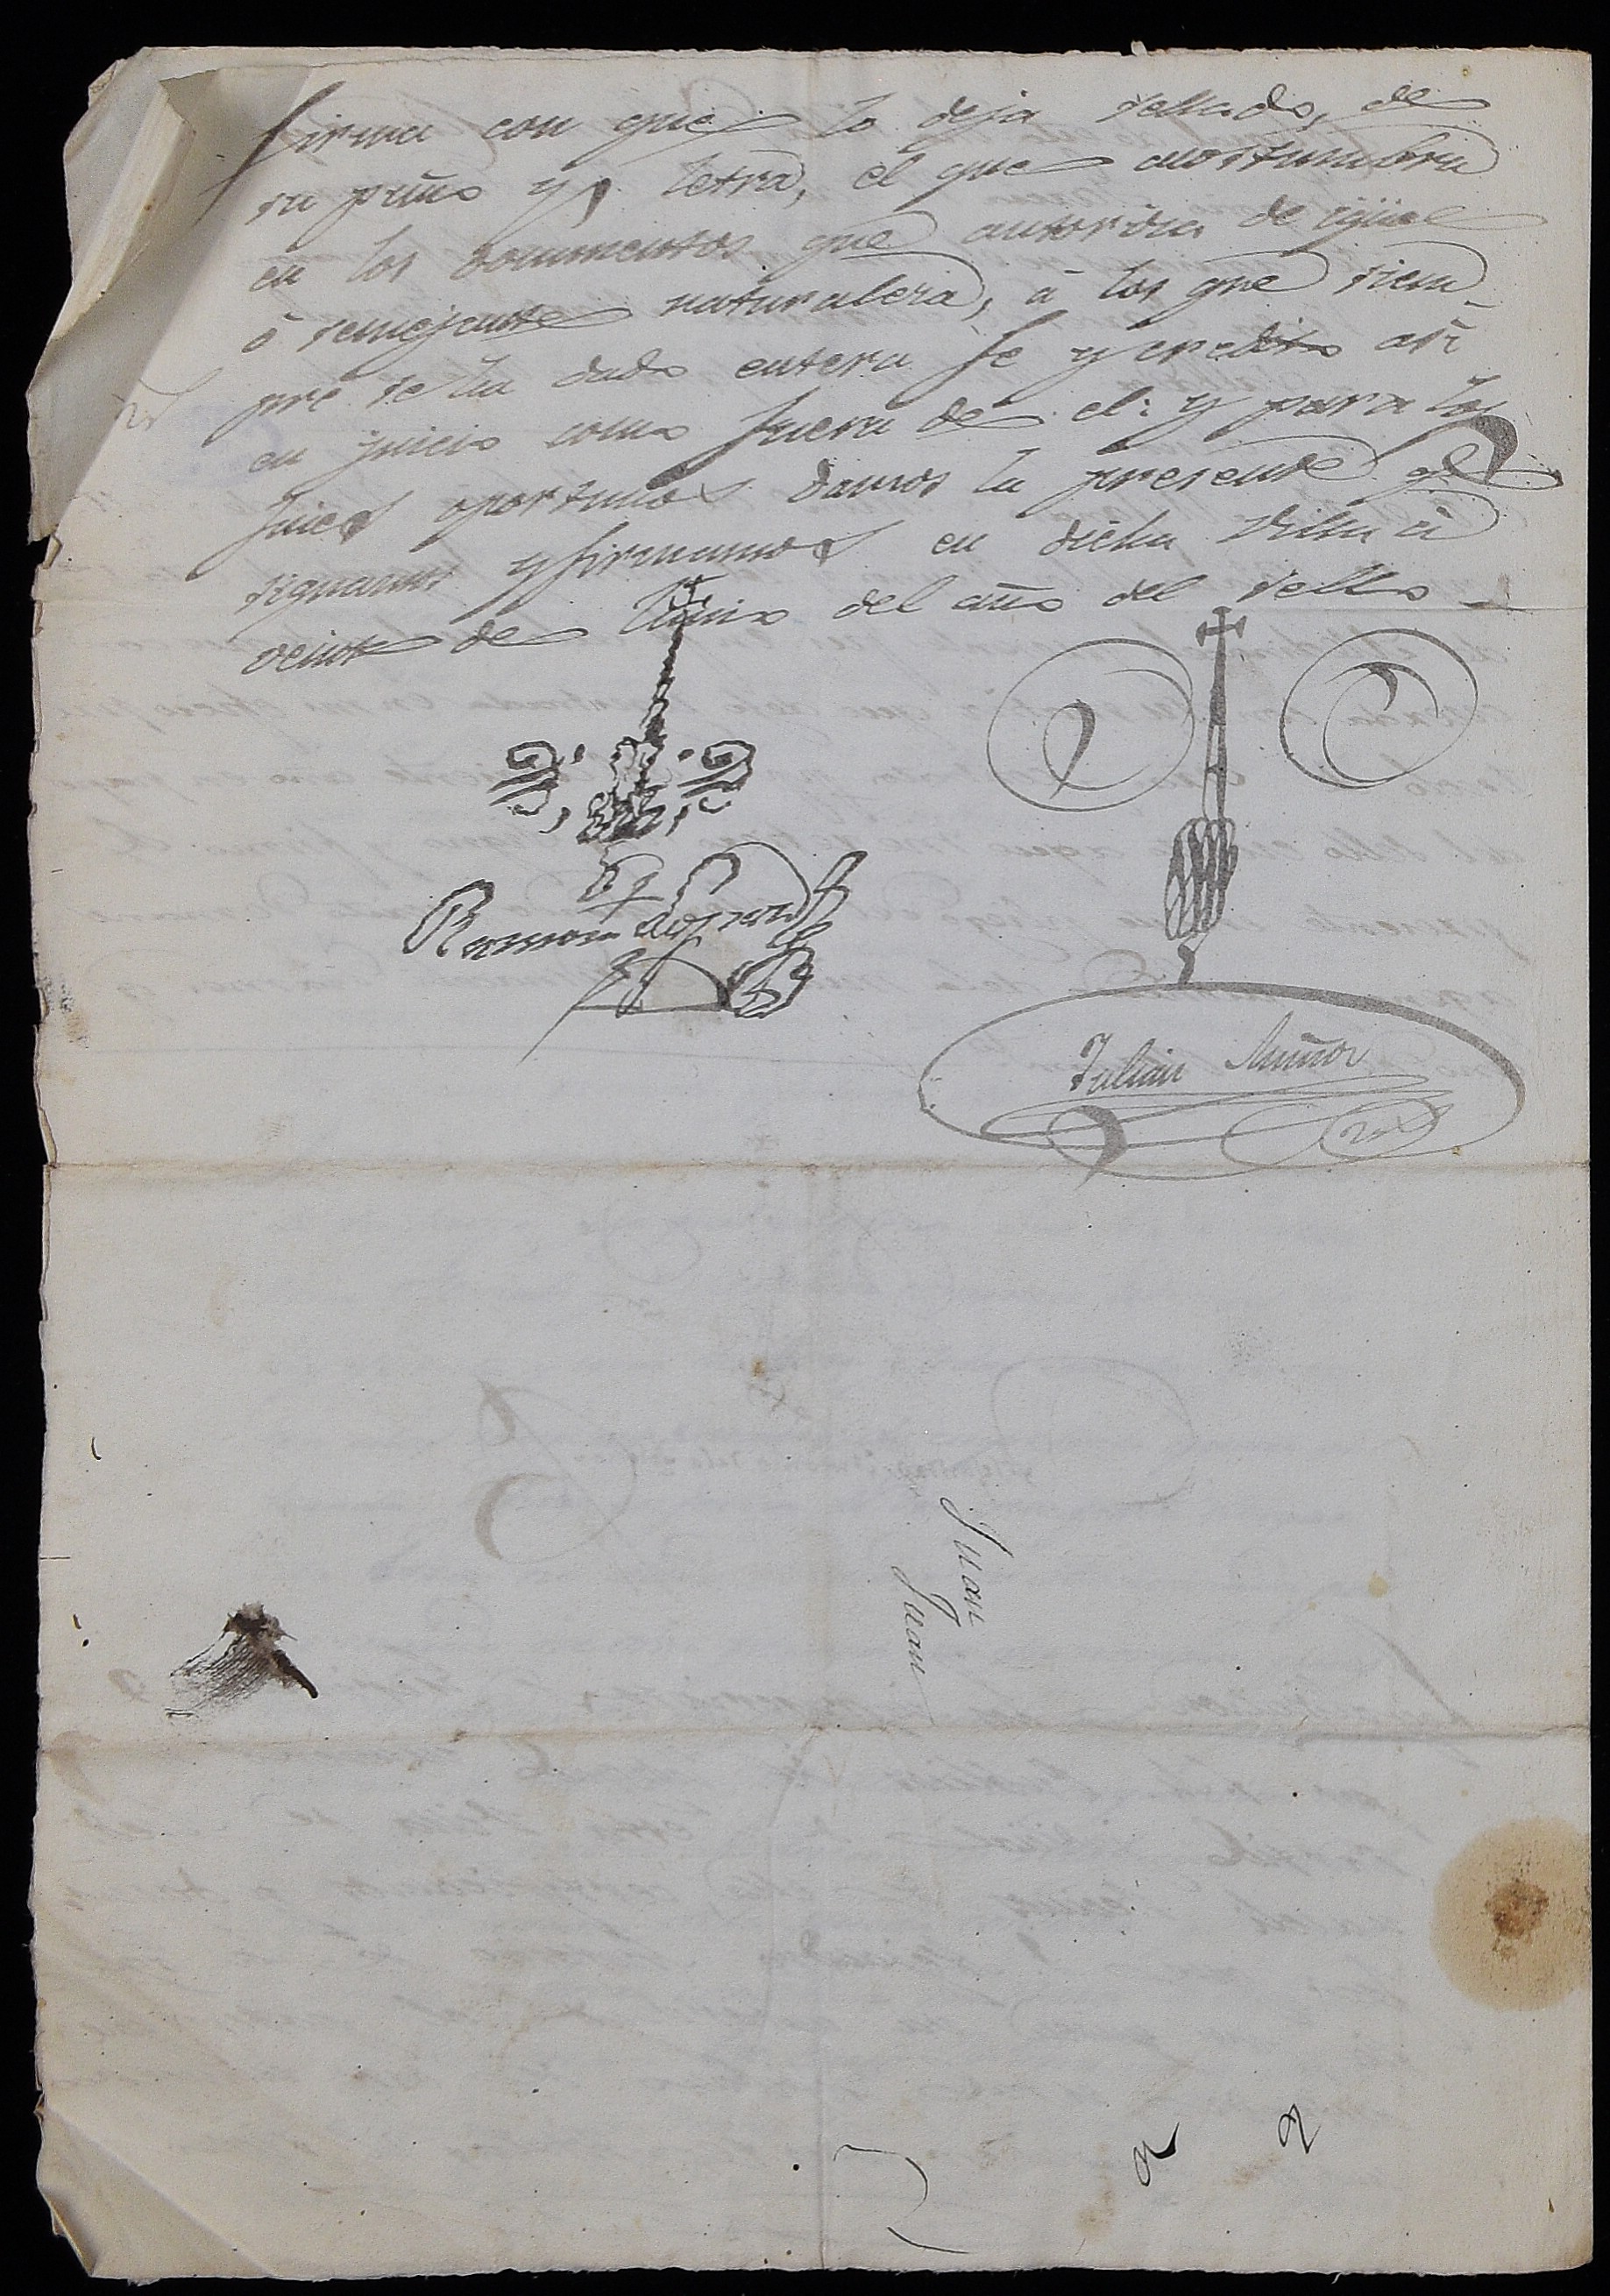 firma con que lo deja sellado, de
su puño y letra, el que acostumbra
en los documentos que autoriza de igual
ó semejante naturaleza, á los que siem-
pre se ha dado entera fe y credito asi
en juicio como fuera de el: y para los
fines oportunos damos la presente q.e
signamos y firmamos en dicha Villa á
veinte de Junio del año del sello
Ramon
Julian Muñoz
Juan
Juan